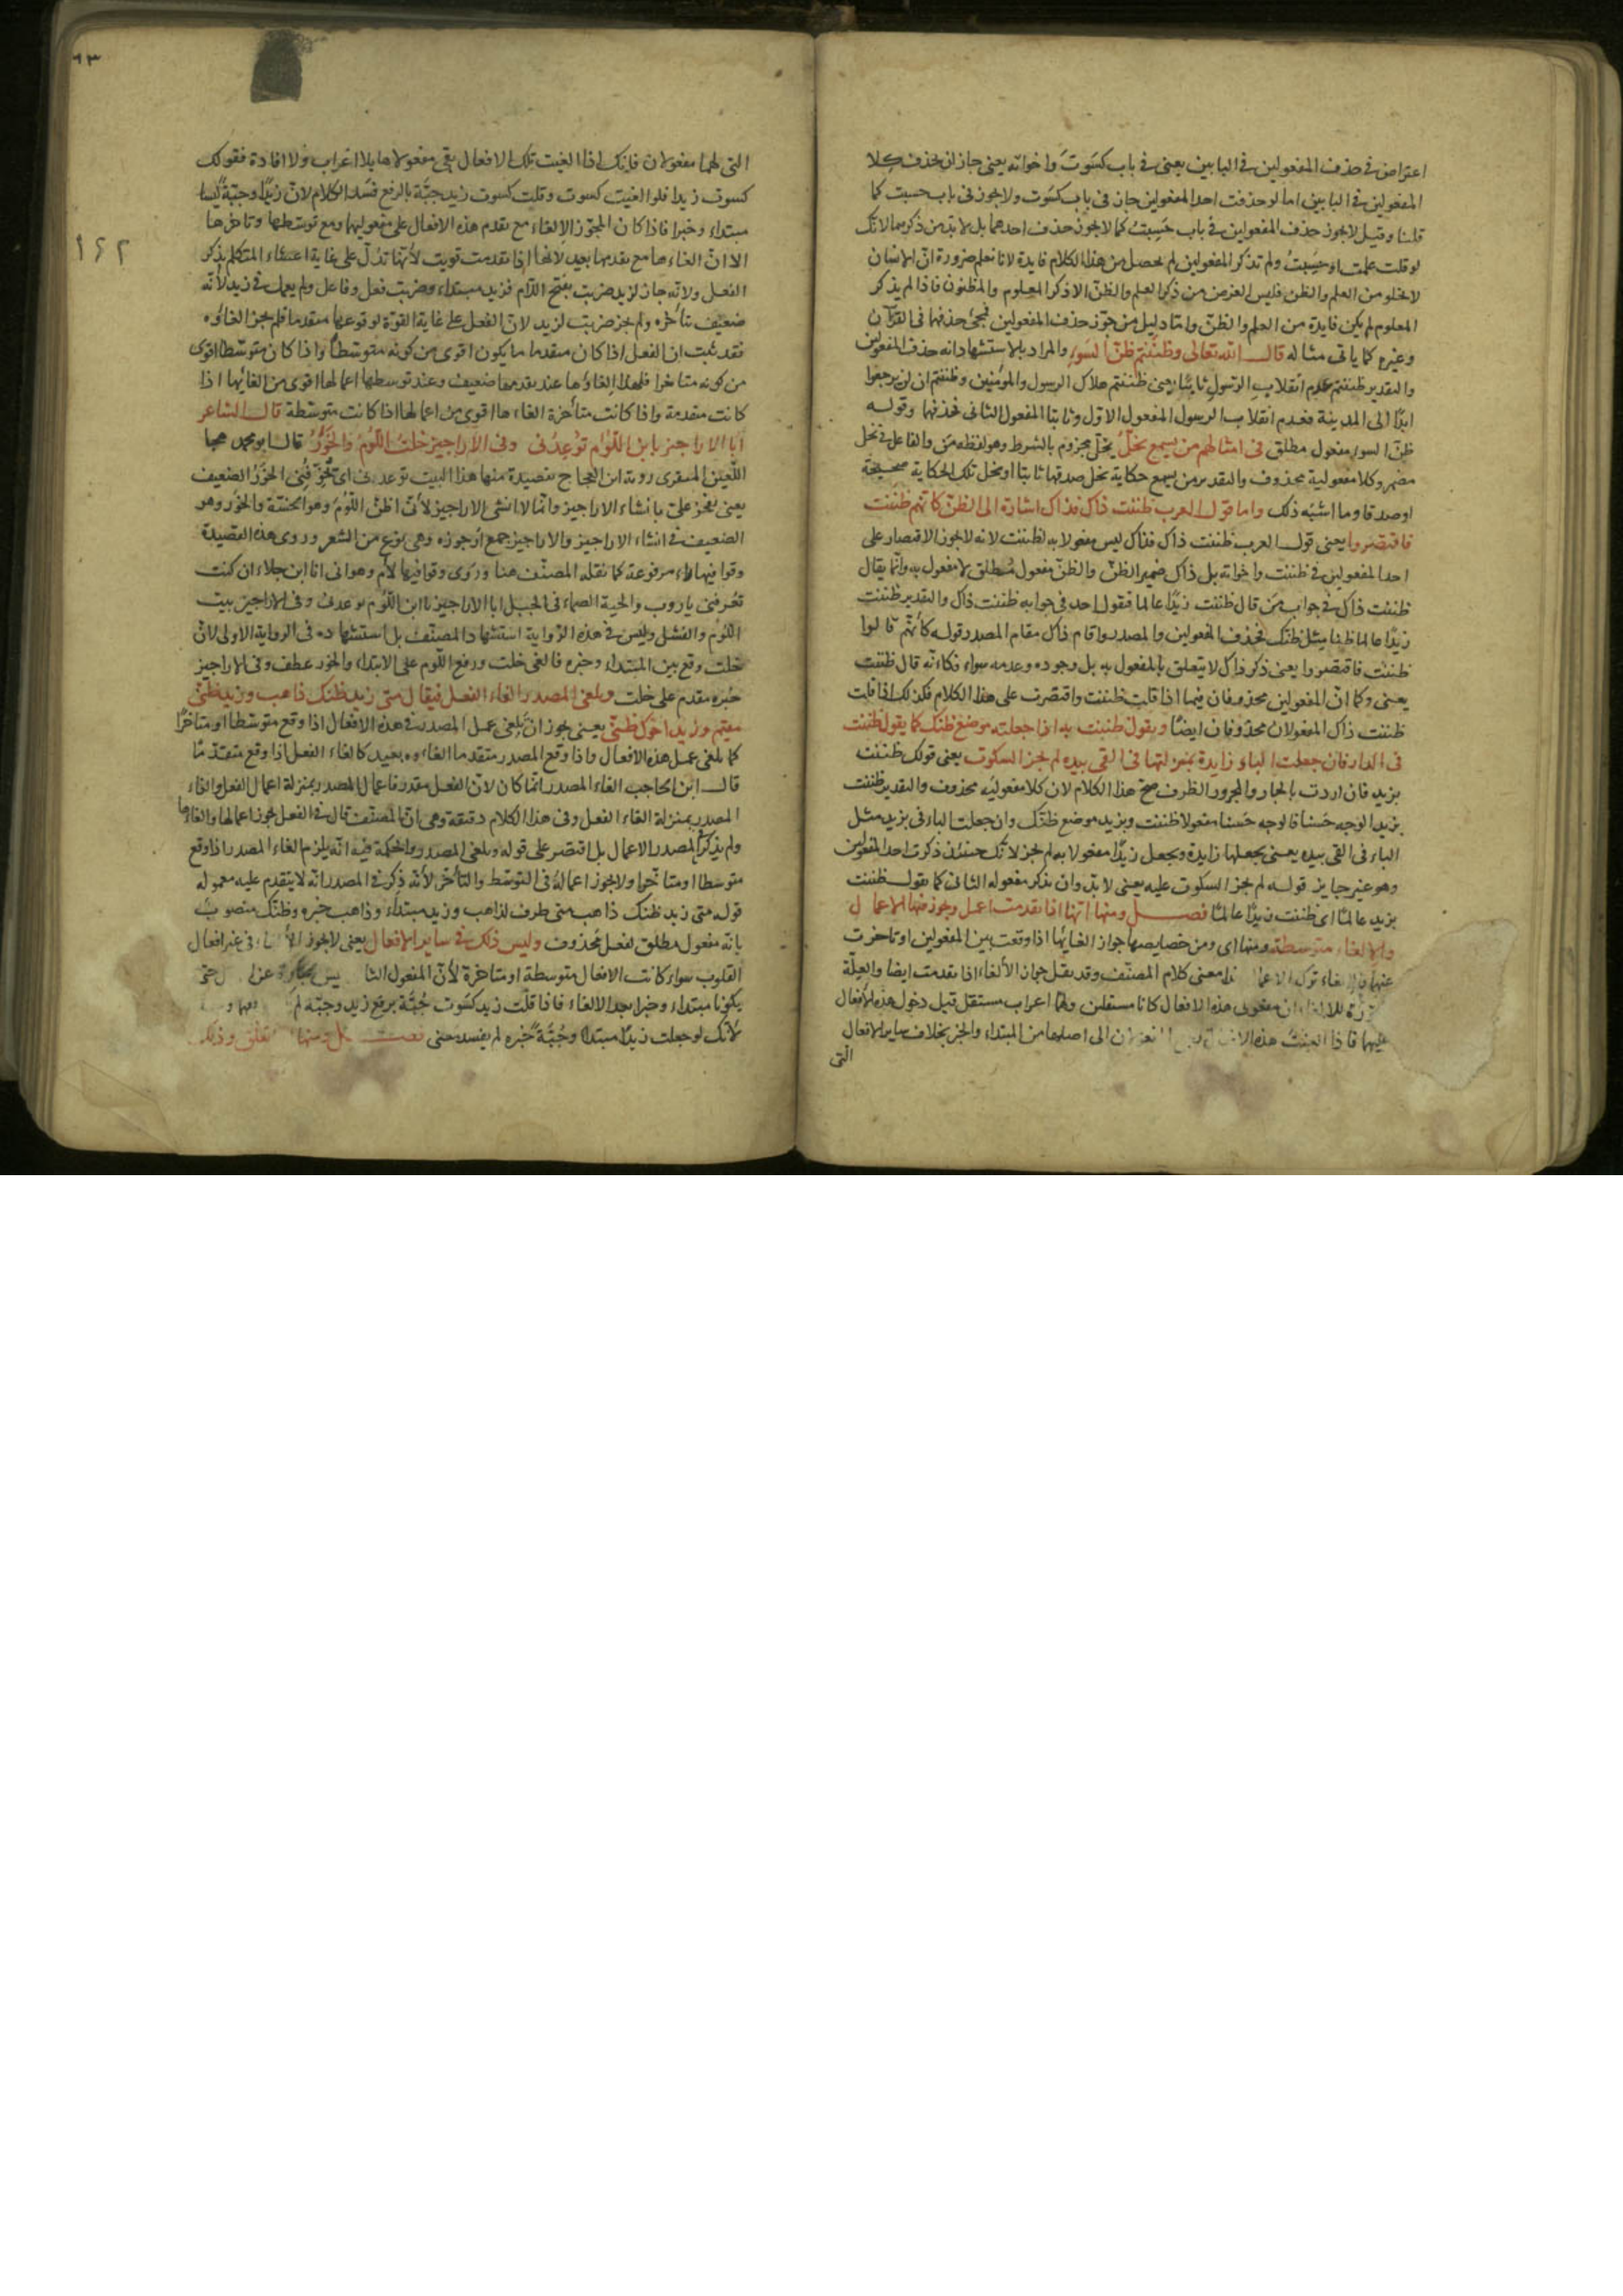 اعتراض في حذف المفعولين في البابين يعني في باب كسوت واخواته يعني جاز ان يحذف كلا
المفعولين في البابين اما لو حذفت احد المفعولين جاز في باب كسوت ولا يجوز في باب حسبت كما
قلنا وقيل لا يجوز حذف المفعولين في باب حسبت كما لا يجوز حذف احدهما بل لا بد من ذكرهما لانك
لو قلت علمت او حسبت ولم تذكر المفعولين لم يحصل من هذا الكلام فايدة لانا نعلم ضرورة ان الانسان
لا يخلو من العلم والظن فليس الغرض من ذكر العلم والظن الا ذكر المعلوم والمظنون فاذا لم يذكر
المعلوم لم يكن فايدة من العلم والظن واما دليل من جوز حذف المفعولين فمجئ حذفهما في القرآن
وغيره كما ياتي مثاله قال الله تعالى وظننتم ظن السوء والمراد بالاستشهاد انه حذف المفعولين
والتقدير ظننتم عدم انقلاب الرسول ثابتا يعني ظننتم هلاك الرسول والمؤمنين وظننتم ان لن يرجعوا
ابدا الى المدينة فعدم انقلاب الرسول المفعول الاول وثابتا المفعول الثاني فحذفهما وقوله
ظن السوء مفعول مطلق في امثالهم من يسمع يخل يخل مجزوم بالشرط وهو لفظه من والفاعل في يخل
مضمر وكلا مفعوليه محذوف والتقدير من يسمع حكاية يخل صدقها ثابتا او يخل تلك الحكاية صحيحة
او صدقا وما اشبه ذلك واما قول العرب ظننت ذاك فذاك اشارة الى الظن كانهم ظننت
فاقتصروا يعني قول العرب ظننت ذاك فذاك ليس مفعولا به لظننت لانه لا يجوز الاقتصار على
احد المفعولين في ظننت واخواته بل ذاك ضمير الظن والظن مفعول مطلق لا مفعول به وانما يقال
ظننت ذاك في جواب من قال ظننت زيدا عالما فتقول احد في جوابه ظننت ذاك والتقدير ظننت
زيدا عالما ظنا مثل ظنك فحذف المفعولين والمصدر واقام ذاك مقام المصدر قوله كانهم قالوا
ظننت فاقتصروا يعني ذكر ذاك لا يتعلق بالمفعول به بل وجوده وعدمه سواء فكانه قال ظننت
يعني وكما ان المفعولين محذوفان فيما اذا قلت ظننت واقتصرت على هذا الكلام فكذلك اذا قلت
ظننت ذاك المفعولان محذوفان ايضا ويقول ظننت به اذا جعلته موضع ظنك كما يقول ظننت
في الدار فان جعلت الباء زايدة بمنزلتها في القى بيده لم يجز السكوت يعني قولك ظننت
بزيد فان اردت بالجار والمجرور الظرف صح هذا الكلام لان كلا مفعوليه محذوف والتقدير ظننت
بزيد الوجه حسنا فالوجه حسنا مفعولا ظننت وبزيد موضع ظنك وان جعلت الباء في بزيد مثل
الباء في القى بيده يعني يجعلها زايدة ويجعل زيدا مفعولا به لم يجز لانك حينئذ ذكرت احد المفعولين
وهو غير جايز قوله لم يجز السكوت عليه يعني لا بد وان يذكر مفعوله الثاني كما يقول ظننت
بزيد عالما اي ظننت زيدا عالما فصل ومنها انها اذا تقدمت اعمل ويجوز فيها الاعمال
والالغاء متوسطة ومنها اي ومن خصايصها جواز الغائها اذا وقعت بين المفعولين او تاخرت
عنهما فالالغاء ترك الاعمال معنى كلام المصنف وقد نقل جواز الالغاء اذا تقدمت ايضا والعلة
للالغاء ان مفعولي هذه الافعال كانا مستقلين ولهما اعراب مستقل قبل دخول هذه الافعال
عليهما فاذا الغيت هذه الى اصلهما من المبتداء والخبر بخلاف ساير الافعال
التي
٩٣
١٤٢
التي لهما مفعولان فانك اذا الغيت تلك الافعال بقي مفعولاها بلا اعراب ولا افادة فقولك
كسوت زيدا فلو الغيت كسوت وقلت كسوت زيد جبة بالرفع فسد الكلام لان زيدا وجبة ليسا
مبتداء وخبرا فاذا كان المجوز الالغاء مع تقدم هذه الافعال على مفعوليها ومع توسطها وتاخرها
الا ان الغاءها مع تقدمها بعيد لانها اذا تقدمت قويت لانها تدل على غاية اعتناء المتكلم بذكر
الفعل ولانه جاز لزيد ضربت بفتح اللام فزيد مبتداء وضربت فعل وفاعل ولم يعمل في زيد لانه
ضعيف بتأخره ولم يجز ضربت لزيد لان الفعل على غاية القوة لوقوعها متقدما فلم يجز الغاؤه
فقد ثبت ان الفعل اذا كان متقدما ما يكون اقوى من كونه متوسطا واذا كان متوسطا اقوى
من كونه متاخرا فلهذا الغاؤها عند تقدمها ضعيف وعند توسطها اعمالها اقوى من الغائها اذا
كانت متقدمة واذا كانت متأخرة الغاءها اقوى من اعمالها اذا كانت متوسطة قال الشاعر
ابا الاراجيز يابن اللؤم توعدني وفي الاراجيز خلت اللؤم والخور قال ابو محمد هجا
اللعين المنقري روبة ابن العجاج بقصيدة منها هذا البيت توعدني اي تخوفني الخور الضعيف
يعني تفخر علي بانشاء الاراجيز وانما لا انشئ الاراجيز لأني اظن اللؤم وهو الخسة والخور وهو
الضعيف في انشاء الاراجيز والاراجيز جمع ارجوزه وهي نوع من الشعر وروى هذه القصيدة
وقوافيها راء مرفوعة كما نقله المصنف هنا وروى وقوافيها لام وهو اني انا ابن جلاء ان كنت
تعرفني ياروب والحية الصماء في الجبل ابا الاراجيز يا ابن اللؤم توعدني وفي الاراجيز بيت
اللؤم والفشل وليس في هذه الرواية استشهاد المصنف بل استشهاده في الرواية الاولى لان
خلت وقع بين المبتداء وخبره فالغى خلت ورفع اللؤم على الابتداء والخور عطف وفي الاراجيز
خبره مقدم على خلت ويلغى المصدر الغاء الفعل فيقال متى زيد ظنك ذاهب وزيد ظني
مقيم وزيد اخوك ظني يعني يجوز ان يلغى عمل المصدر في هذه الافعال اذا وقع متوسطا او متاخرا
كما يلغى عمل هذه الافعال واذا وقع المصدر متقدما الغاءوه بعيد كالغاء الفعل اذا وقع متقدما
قال ابن الحاجب الغاء المصدر انما كان لان الفعل مقدر فاعمال المصدر بمنزلة اعمال الفعل والغاء
المصدر بمنزلة الغاء الفعل وفي هذا الكلام دقيقة وهي ان المصنف قال في الفعل يجوز اعمالها والغاؤها
ولم يذكر في المصدر الاعمال بل اقتصر على قوله ويلغى المصدر والحكمة فيه انه يلزم الغاء المصدر اذا وقع
متوسطا او متاخرا ولا يجوز اعماله في التوسط والتأخر لأنه ذكر في المصدر انه لا يتقدم عليه معموله
قوله متى زيد ظنك ذاهب متى ظرف لذاهب وزيد مبتداء وذاهب خبره وظنك منصوب
بانه مفعول مطلق لفعل محذوف وليس ذلك في ساير الافعال يعني لا يجوز في غير افعال
القلوب سواء كانت الافعال متوسطة او متاخرة لأن المفعول
يكونا مبتداء وخبرا بعد الالغاء فاذا قلت زيد كسوت جبة برفع زيد وجبة لم
لأنك لو جعلت زيدا مبتدا وجبة خبره لم يفسد معنى